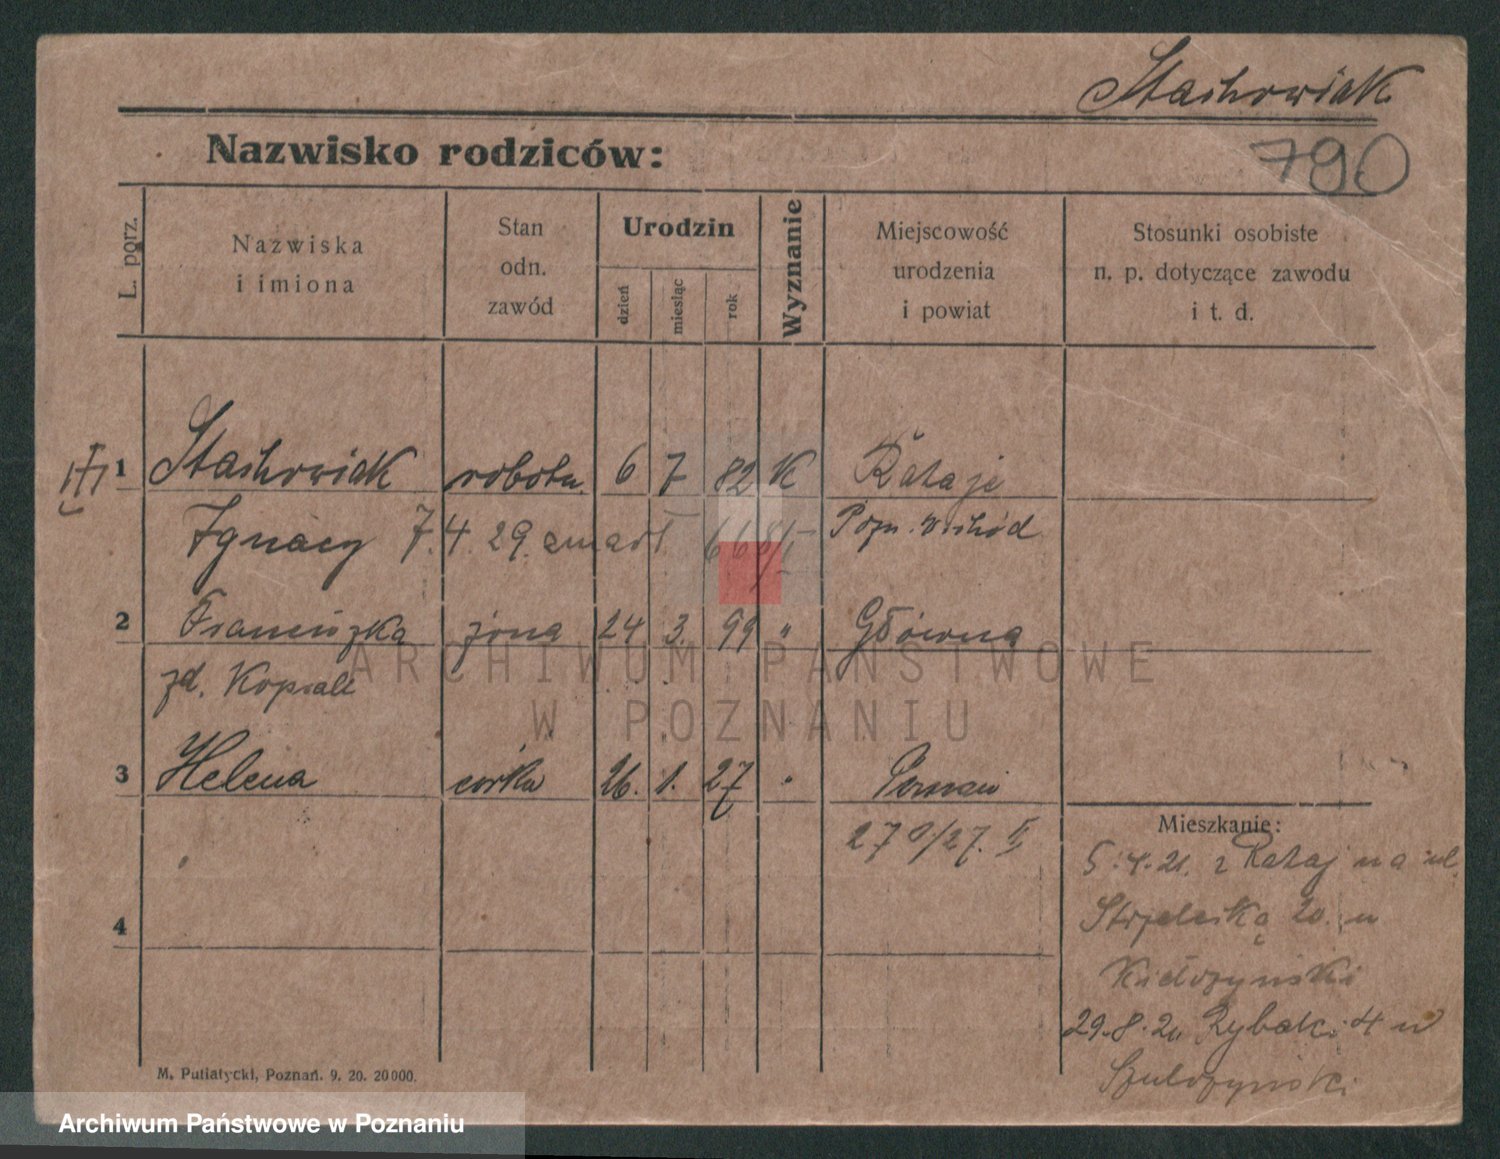 Stachowiak
790
Nazwisko rodziców:
L. porz.
Nazwiska
i imiona
Stan
odn.
zawód
Urodzin
dzień
miesiąc
rok
Wyznanie
Miejscowość
urodzenia
i powiat
Stosunki osobiste
n. p. dotyczące zawodu
i t. d.
1 Stachowiak robotn. 6 7 82 K Rataje
Ignacy 7.4.29. zmarł Pozn. wschód
2 Franciszka żona 24 3. 99 " Główna
zd.
3 Helena córka 26. 1. 27 " Poznań
27
4
Mieszkanie:
5.4.21. z Rataj na ul.
Strzelecką 20. u
29.8.21. Rybaki 4 u
M. Putiatycki, Poznań. 9. 20. 20000.
ARCHIWUM PAŃSTWOWE
W POZNANIU
Archiwum Państwowe w Poznaniu